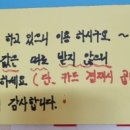 하고 있으니 이용 하시구요. ~
값은 따로 받지 않으니
하세요 (단, 카드 결재시
감사합니다.